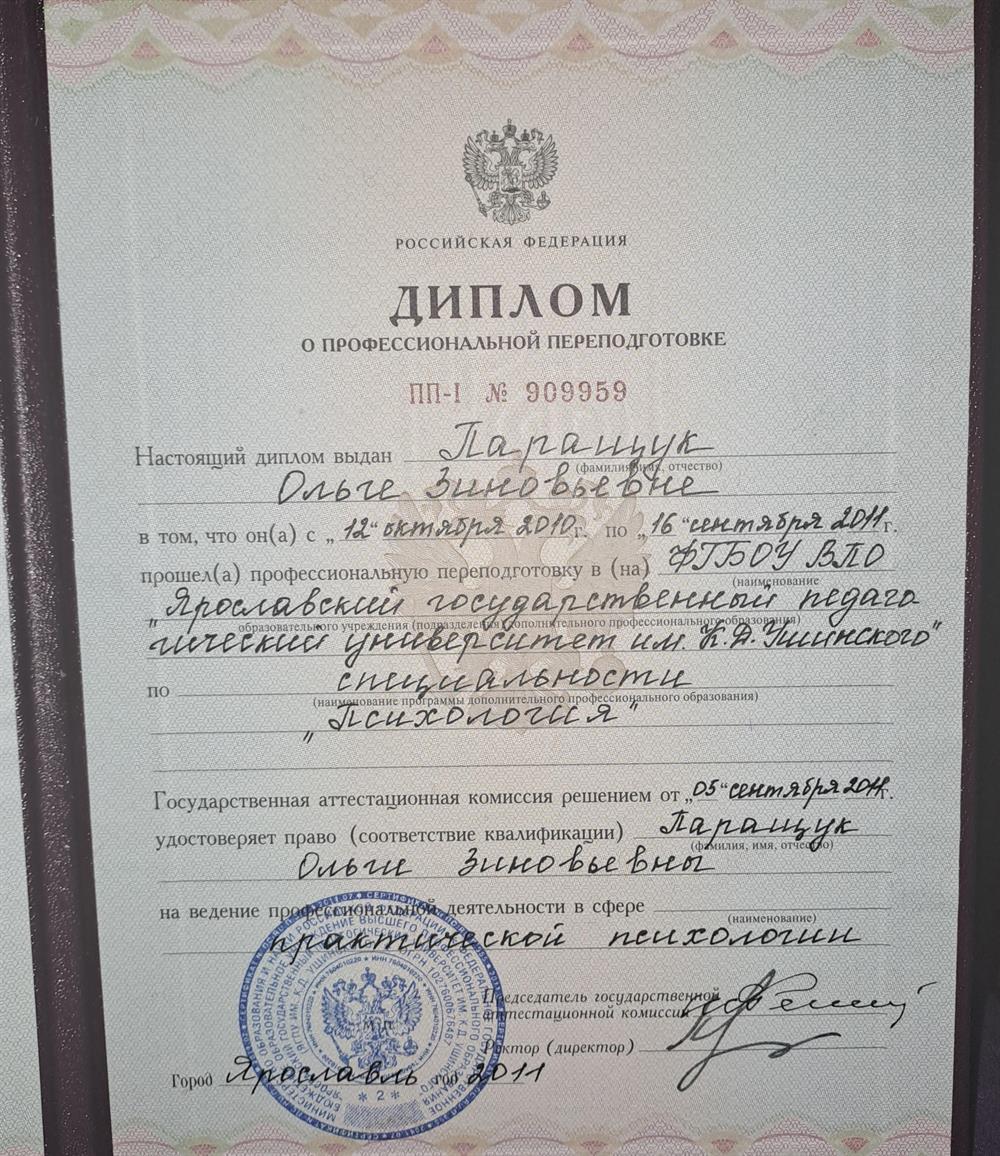 РОССИЙСКАЯ ФЕДЕРАЦИЯ
ДИПЛОМ
О ПРОФЕССИОНАЛЬНОЙ ПЕРЕПОДГОТОВКЕ
ПП-I № 909959
Настоящий диплом выдан Паращук
(фамилия, имя, отчество)
Ольге Зиновьевне
в том, что он(а) с „12“ октября 2010г. по „16“ сентября 2011г.
прошел(а) профессиональную переподготовку в (на) ФГБОУ ВПО
(наименование
„Ярославский государственный педаго-
образовательного учреждения (подразделения) дополнительного профессионального образования)
гический университет им. К.Д. Ушинского"
по специальности
(наименование программы дополнительного профессионального образования)
„Психология"
Государственная аттестационная комиссия решением от „05“ сентября 2011г.
удостоверяет право (соответствие квалификации) Паращук
(фамилия, имя, отчество)
Ольги Зиновьевны
на ведение профессиональной деятельности в сфере
(наименование)
практической психологии
Председатель государственной
аттестационной комиссии
Ректор (директор)
Город Ярославль год 2011
* 2 *